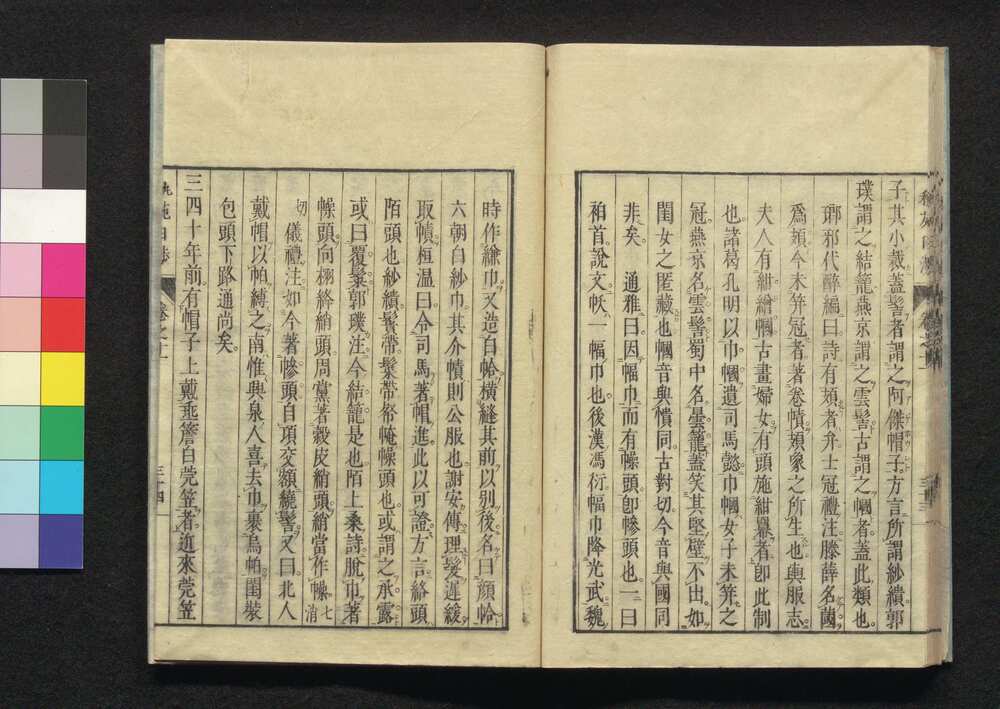 子其小裁蓋髻者謂之阿傑帽子方言所謂紗繢郭
璞謂之結籠燕京謂之雲髻古謂之幗者蓋此類也
瑯邪代醉編曰詩有頍者弁士冠禮注滕薛名蔮
爲頍今未笄冠者著卷幘頍象之所生也輿服志
夫人有紺繒幗古畫婦女有頭施紺冪者卽此制
也諸葛孔明以巾幗遺司馬懿巾幗女子未笄之
冠燕京名雲髻蜀中名曇籠蓋笑其堅壁不出如
閨女之匿藏也幗音與憒同古對切今音與國同
非矣 通雅曰因幅巾而有幧頭卽幓頭也一曰
袙首說文帗一幅巾也後漢馮衍幅巾降光武魏
時作縑巾又造白帢橫縫其前以別後名曰顏帢
六朝白紗巾其介幘則公服也謝安傳理髮遲緩
取幘桓温曰令司馬著帽進此以可證方言絡頭
陌頭也紗繢鬢帶髤帶帤㡋幧頭也或謂之承露
或曰覆髤郭璞注今結籠是也陌上桑詩脫巾著
幧頭向栩絳綃頭周黨著穀皮綃頭綃當作幧七消
切 儀禮注如今著幓頭自項交額繞髻又曰北人
戴帽以帕縛之南惟興泉人喜去巾裹烏帕閨裝
包頭下路通尚矣
三四十年前有帽子上戴垂簷白莞笠者近來莞笠
卷之十一
三十四